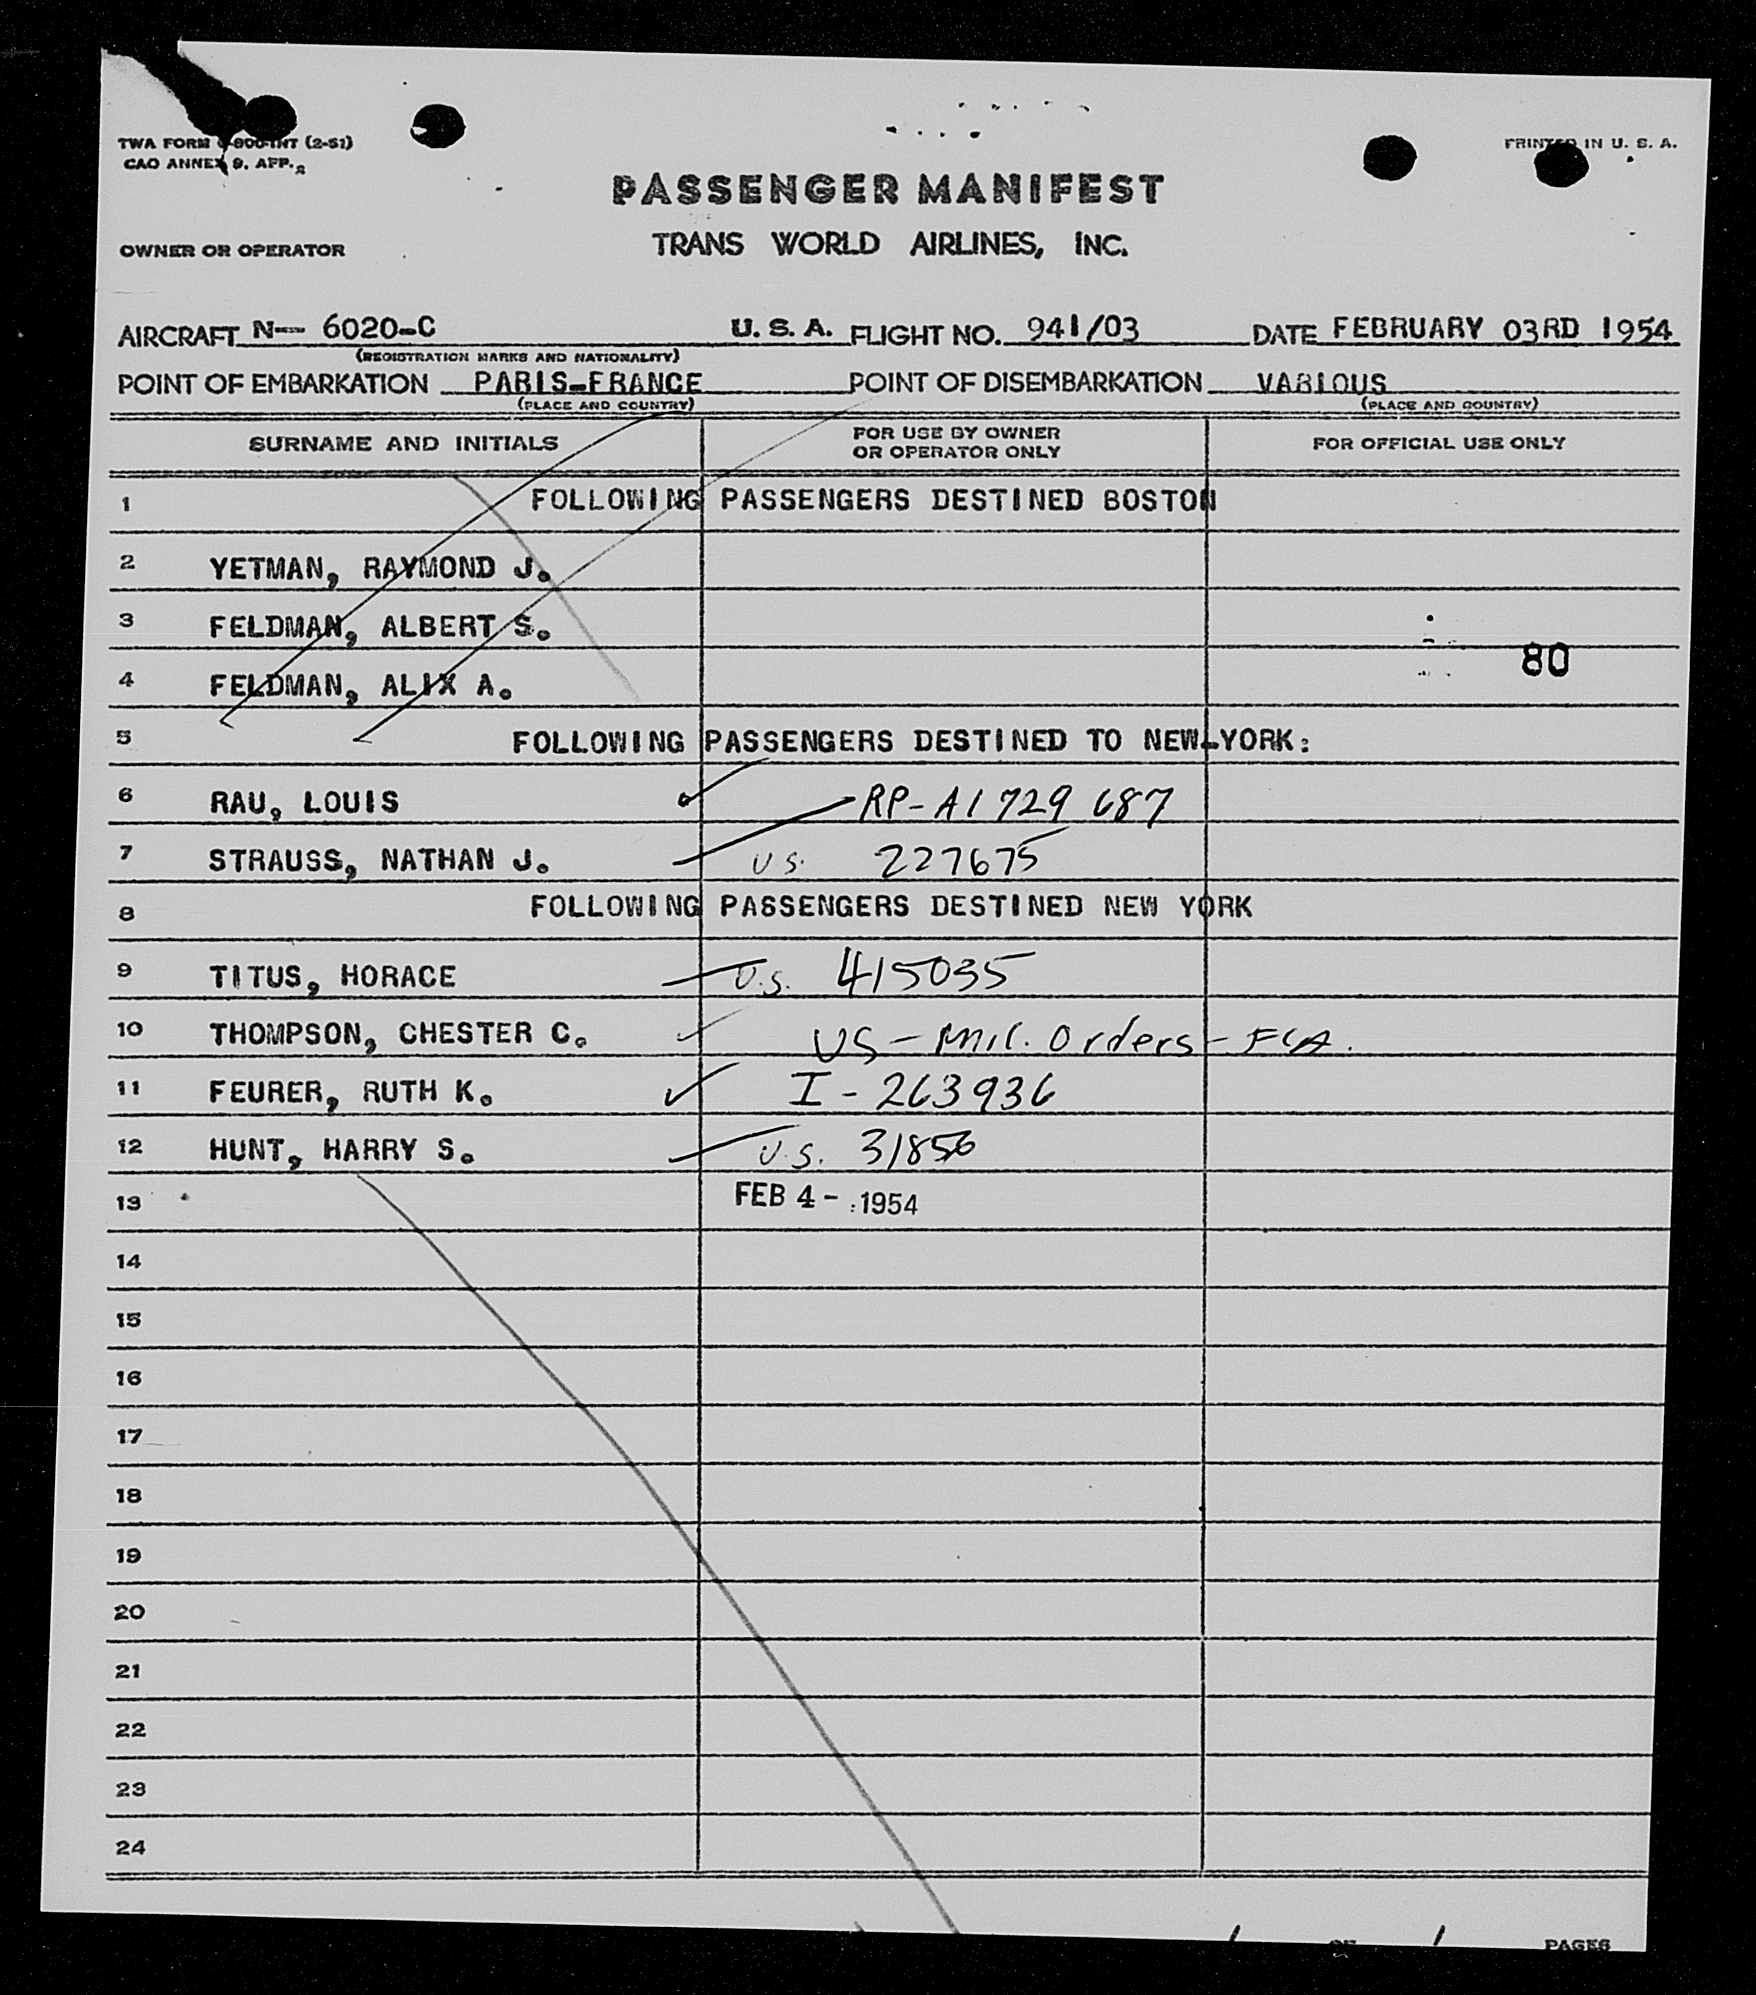 TWA FORM (2-51)
PRINTED IN U. S. A.
CAO ANNEX 9, APP. 2
PASSENGER MANIFEST
OWNER OR OPERATOR
TRANS WORLD AIRLINES, INC.
AIRCRAFT N-- 6020-C U. S. A. FLIGHT NO. 941/03 DATE FEBRUARY 03RD 1954
(REGISTRATION MARKS AND NATIONALITY)
POINT OF EMBARKATION PARIS-FRANCE POINT OF DISEMBARKATION VARIOUS
(PLACE AND COUNTRY) (PLACE AND COUNTRY)
SURNAME AND INITIALS FOR USE BY OWNER OR OPERATOR ONLY FOR OFFICIAL USE ONLY
1 FOLLOWING PASSENGERS DESTINED BOSTON
2 YETMAN, RAYMOND J.
3 FELDMAN, ALBERT S.
80
4 FELDMAN, ALIX A.
5 FOLLOWING PASSENGERS DESTINED TO NEW-YORK:
6 RAU, LOUIS RP-A1729 687
7 STRAUSS, NATHAN J. US. 227675
8 FOLLOWING PASSENGERS DESTINED NEW YORK
9 TITUS, HORACE U.S. 415035
10 THOMPSON, CHESTER C. US - Mil. Orders -
11 FEURER, RUTH K. I - 263936
12 HUNT, HARRY S. U.S. 31856
13 FEB 4 - 1954
14
15
16
17
18
19
20
21
22
23
24
1 OF 1 PAGES